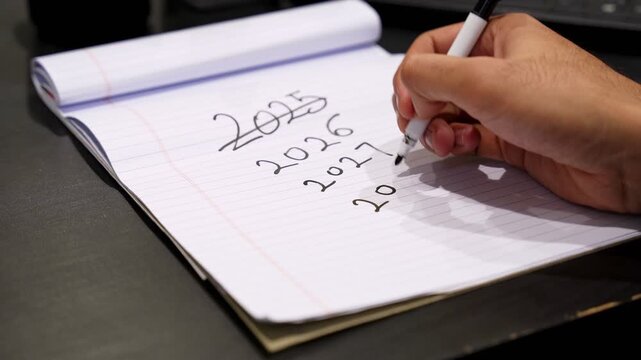 2025
2026
2027
20